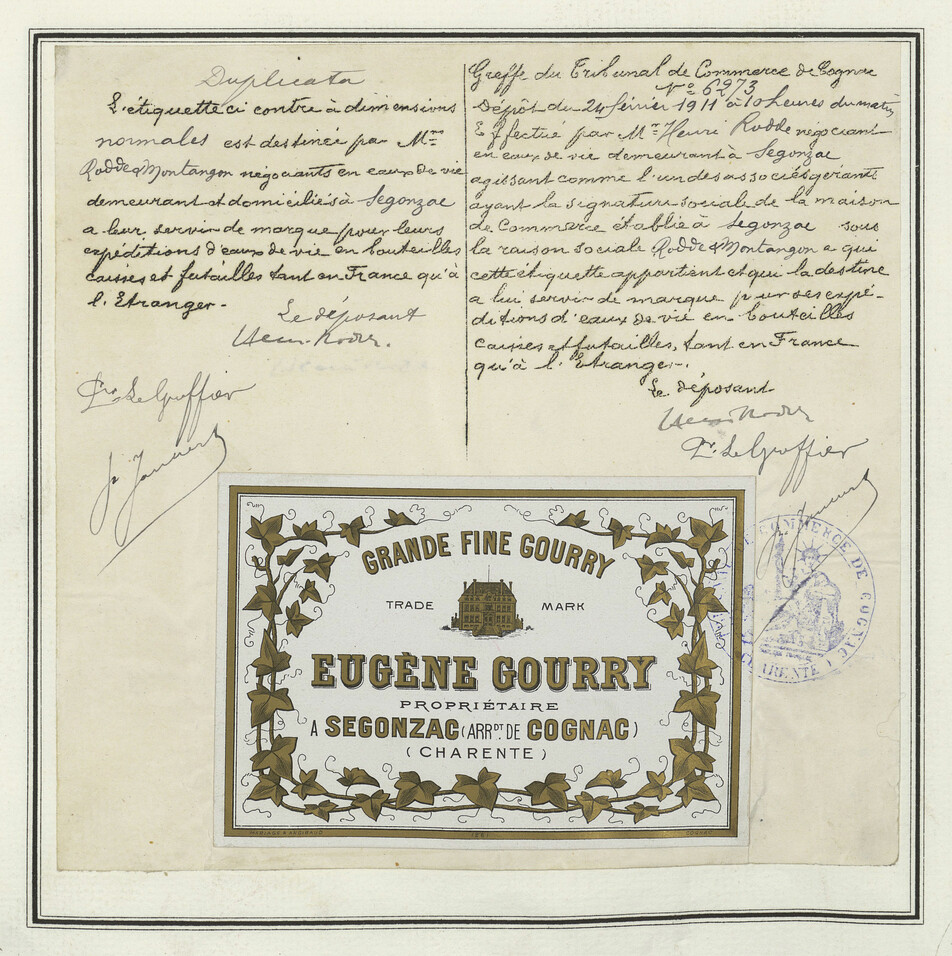 Duplicata
L'étiquette ci contre à dimensions
normales est destinée par Mrs
Rodde & Montangon négociants en eaux de vie
demeurant et domiciliés à Segonzac
a leur servir de marque pour leurs
expéditions d'eaux de vie en bouteilles
caisses et futailles tant en France qu'à
l'Etranger.
Le déposant
Henri Rodde.
Pr Le Greffier
Greffe du Tribunal de Commerce de Cognac
No 6273
Dépôt du 24 février 1911 à 10 heures du matin
Effectué par Mr Henri Rodde négociant
en eaux de vie demeurant à Segonzac
agissant comme l'un des associés gérants
ayant la signature sociale de la maison
de Commerce établie à Segonzac sous
la raison sociale Rodde & Montangon e qui
cette étiquette appartient et qui la destine
a lui servir de marque pour ses expé-
ditions d'eaux de vie en bouteilles
caisses et futailles, tant en France
qu'à l'Etranger.
Le déposant
Henri Rodde
Pr Le Greffier
GRANDE FINE GOURRY
TRADE MARK
EUGÈNE GOURRY
PROPRIÉTAIRE
A SEGONZAC (ARRDT. DE COGNAC)
(CHARENTE)
1281
COGNAC
COMMERCE DE COGNAC